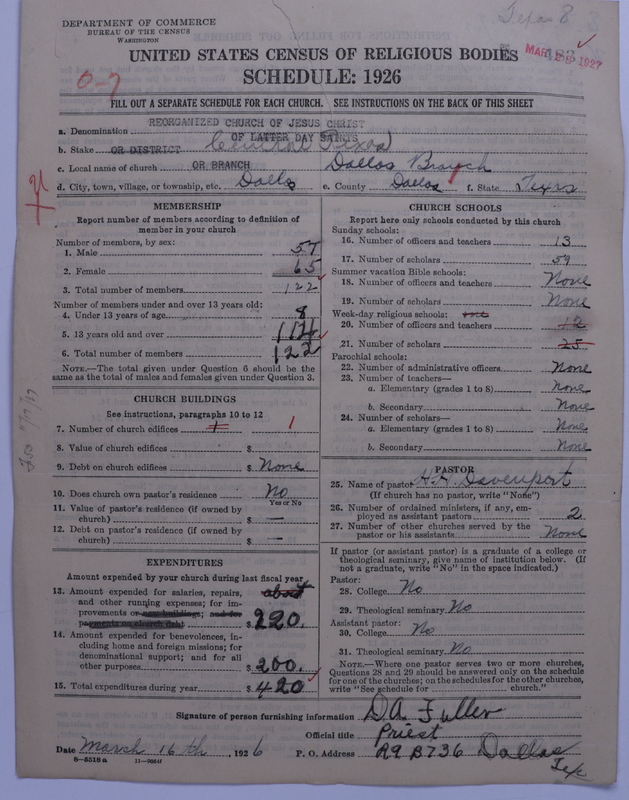 DEPARTMENT OF COMMERCE
BUREAU OF THE CENSUS
WASHINGTON
UNITED STATES CENSUS OF RELIGIOUS BODIES
SCHEDULE: 1926
0-7
FILL OUT A SEPARATE SCHEDULE FOR EACH CHURCH. SEE INSTRUCTIONS ON THE BACK OF THIS SHEET
REORGANIZED CHURCH OF JESUS CHRIST
a. Denomination OF LATTER DAY SAINTS
b. Stake OR DISTRICT Central Texas
c. Local name of church OR BRANCH Dallas Branch
d. City, town, village, or township, etc. Dallas e. County Dallas f. State Texas
MEMBERSHIP
Report number of members according to definition of
member in your church
Number of members, by sex:
1. Male 57
2. Female 65
3. Total number of members 122
Number of members under and over 13 years old:
4. Under 13 years of age 8
5. 13 years old and over 114
6. Total number of members 122
NOTE.—The total given under Question 6 should be the
same as the total of males and females given under Question 3.
CHURCH BUILDINGS
See instructions, paragraphs 10 to 12
7. Number of church edifices 1 1
8. Value of church edifices $
9. Debt on church edifices $ None
10. Does church own pastor's residence No
Yes or No
11. Value of pastor's residence (if owned by
church) $ —
12. Debt on pastor's residence (if owned by
church) $ —
EXPENDITURES
Amount expended by your church during last fiscal year
13. Amount expended for salaries, repairs, about
and other running expenses; for im-
provements or new buildings; and for
payments on church debt $ 220.
14. Amount expended for benevolences, in-
cluding home and foreign missions; for
denominational support; and for all
other purposes $ 200.
15. Total expenditures during year $ 420
CHURCH SCHOOLS
Report here only schools conducted by this church
Sunday schools:
16. Number of officers and teachers 13
17. Number of scholars 59
Summer vacation Bible schools:
18. Number of officers and teachers None
19. Number of scholars None
Week-day religious schools: one
20. Number of officers and teachers 12
21. Number of scholars 25
Parochial schools:
22. Number of administrative officers None
23. Number of teachers—
a. Elementary (grades 1 to 8) None
b. Secondary None
24. Number of scholars—
a. Elementary (grades 1 to 8) None
b. Secondary None
PASTOR
25. Name of pastor H.H. Davenport
(If church has no pastor, write "None")
26. Number of ordained ministers, if any, em-
ployed as assistant pastors 2
27. Number of other churches served by the
pastor or his assistants None
If pastor (or assistant pastor) is a graduate of a college or
theological seminary, give name of institution below. (If
not a graduate, write "No" in the space indicated.)
Pastor:
28. College No
29. Theological seminary No
Assistant pastor:
30. College No
31. Theological seminary No
NOTE.—Where one pastor serves two or more churches,
Questions 28 and 29 should be answered only on the schedule
for one of the churches; on the schedules for the other churches,
write "See schedule for church."
Signature of person furnishing information D A Fuller
Official title Priest
Date March 16th, 1926 P. O. Address R9 B736 Dallas
Tex
8—5518a